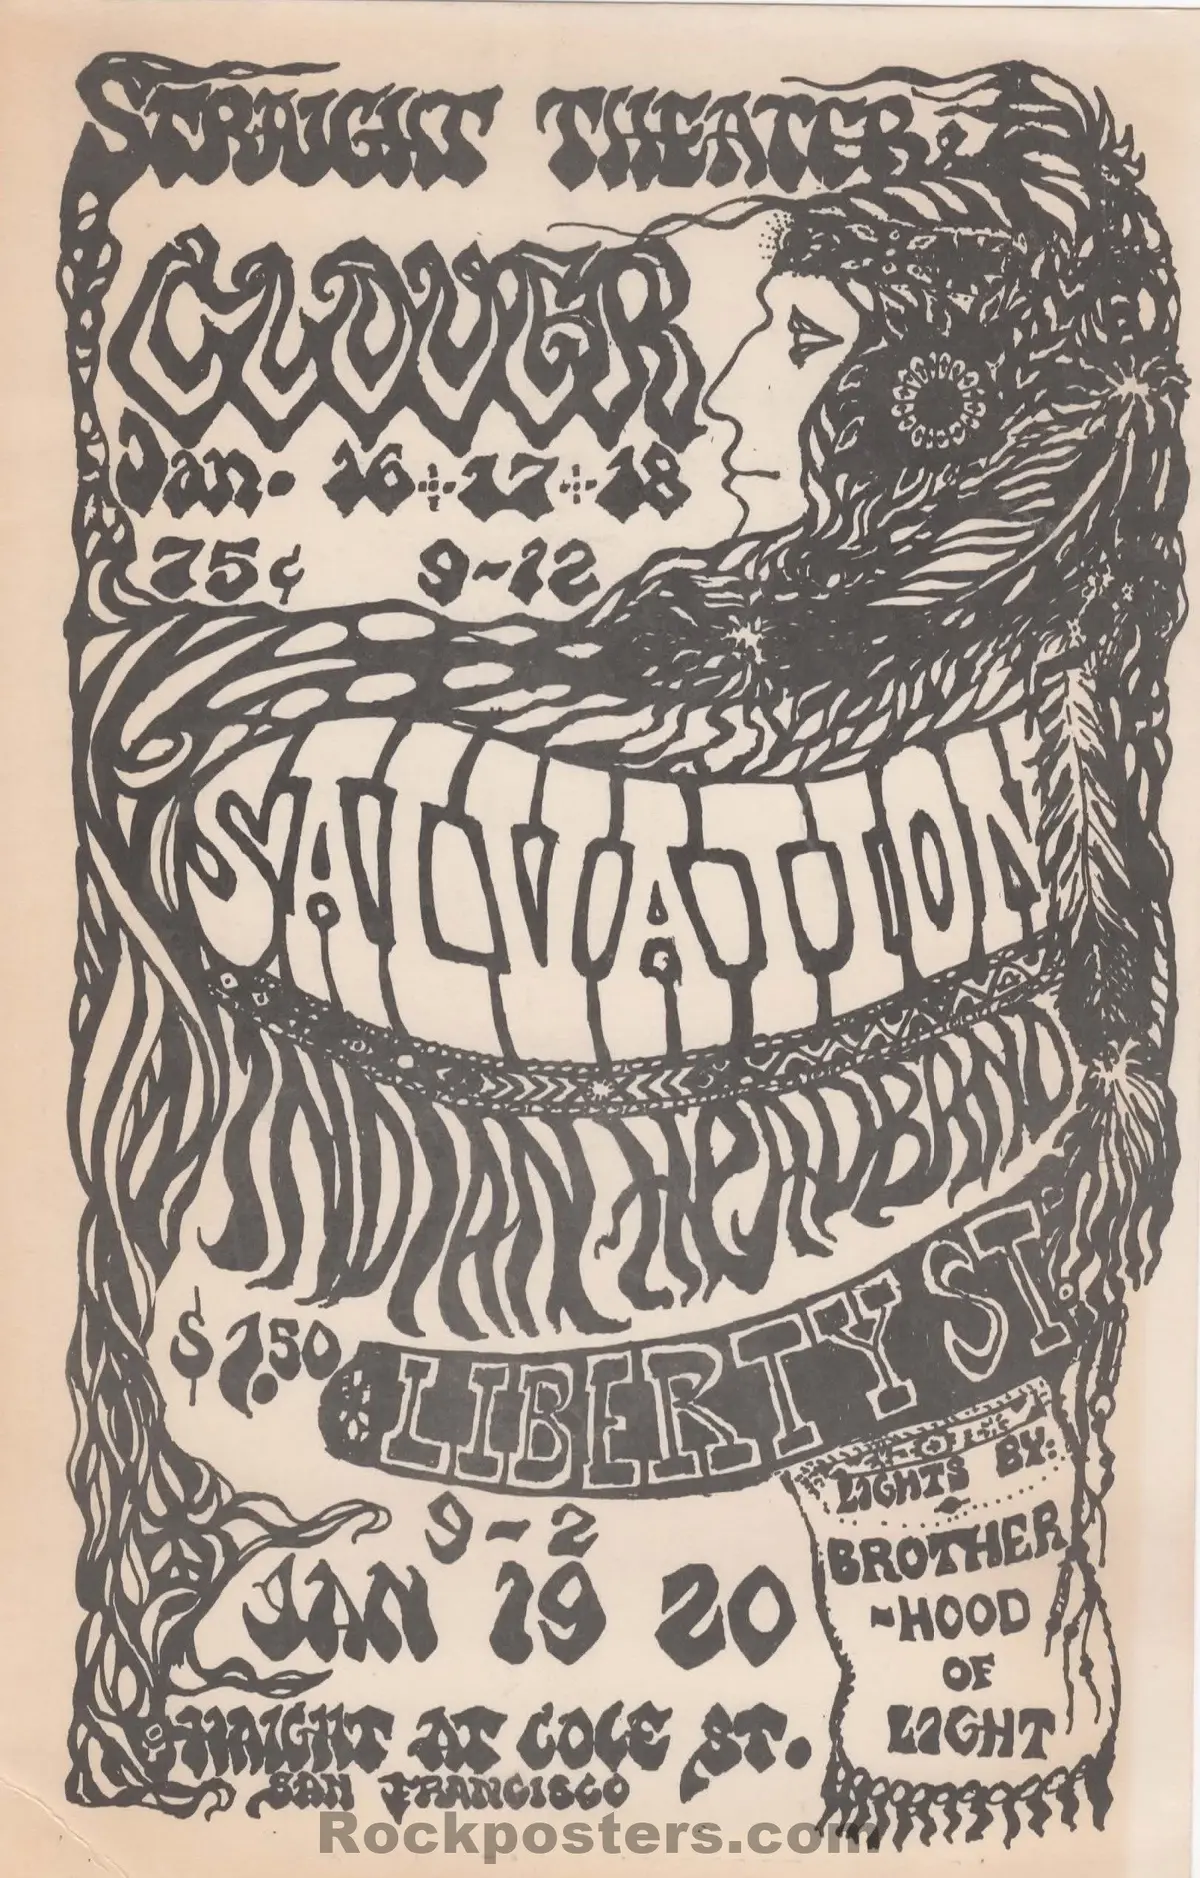 STRAIGHT THEATER
CLOVER
Jan. 16+17+18
75¢ 9-12
SALVATION
INDIAN HEADBAND
$1.50
LIBERTY ST.
LIGHTS BY:
BROTHER
-HOOD
OF
LIGHT
9-2
JAN 19 20
HAIGHT AT COLE ST.
SAN FRANCISCO
Rockposters.com